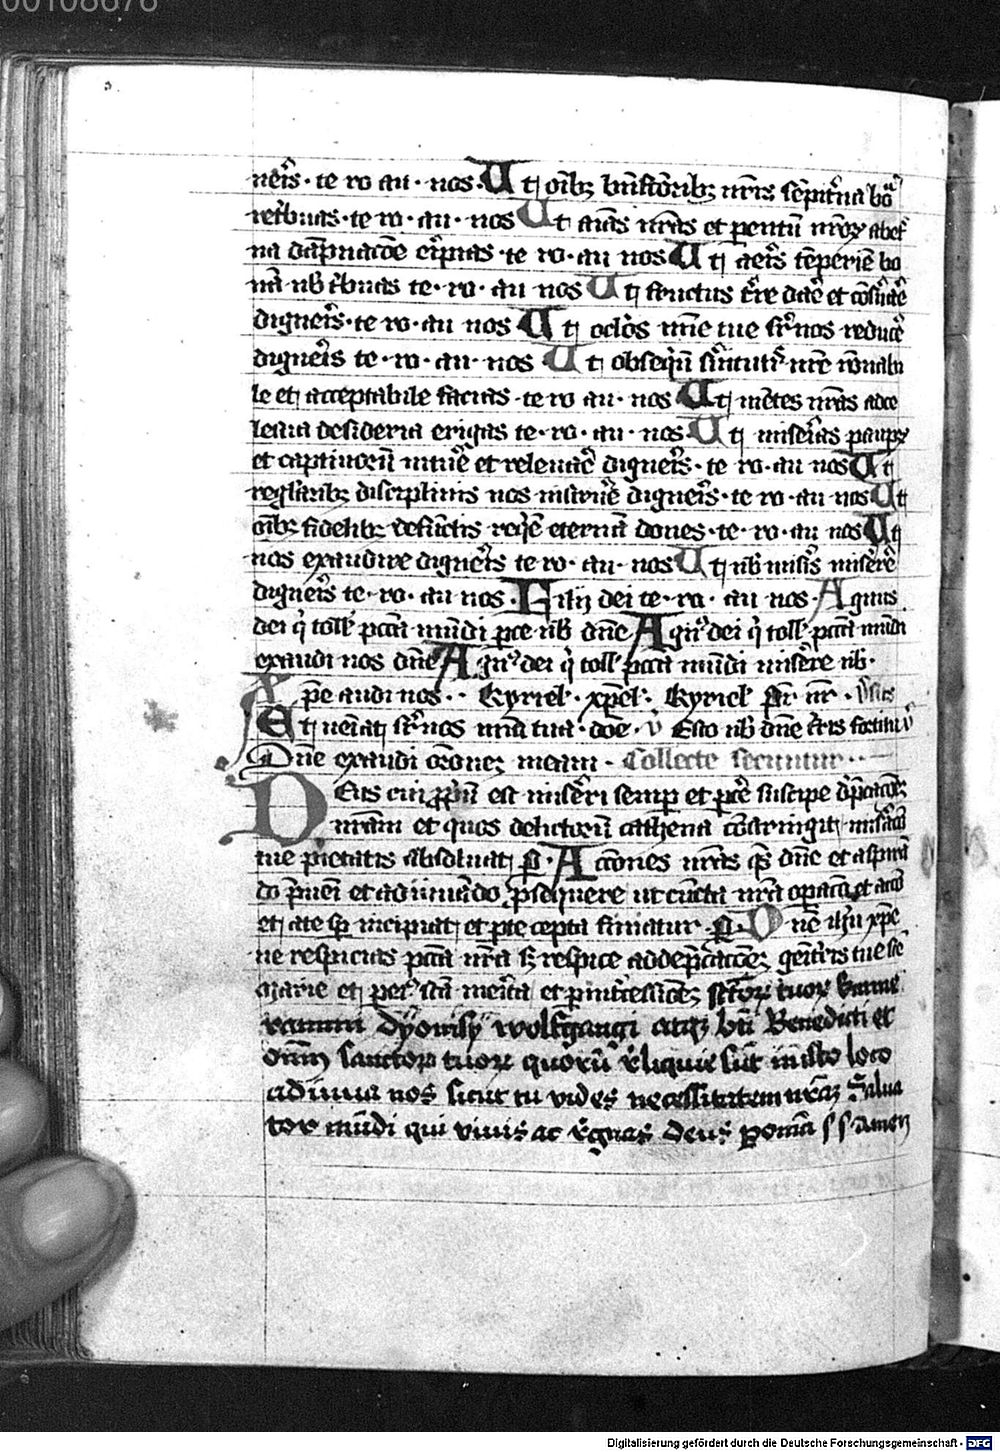 00108676
neris · te ro au · nos · Ut oībz bn̄fc̄oribz nr̄is sēpit̄na bōa
ret̄buas · te · ro · au · nos Ut aīas nr̄as et parentū nr̄oꝝ ab et̄
na dāpnacōe eripias · te · ro · au nos Ut aeris tēperiē bo
nā nb̄ t̄buas te · ro · au nos Ut fructus t̄re dar̄e et cōs̄uar̄e
digneris · te · ro · au nos Ut oclōs mīe tue sr̄ nos reducē
digneris te · ro · au · nos Ut obsequiū s̄uitutis nr̄e rōnabi
le et acceptabile facias · te ro au · nos Ut mētes nr̄as ad ce
lestia desideria erigas te · ro · au · nos · Ut miserias pauꝑꝝ
et captiuorū intuēi et releuar̄e digneris · te · ro · au nos Ut
regl̄aribz disciplinis nos instruē digneris · te · ro · au · nos Ut
oībz fidelibz defūctis reqē eternā dones · te · ro · au nos Ut
nos exaudire digneris te · ro · au · nos Ut nb̄ misis̄ miserēi
digneris te · ro · au · nos · Fili dei te · ro · au nos · Agnus
dei q̄ toll̄ pcc̄ā mūdi pce nb̄ dn̄e Agn̄ dei q̄ toll̄ pcc̄ā mūdi
exaudi nos dn̄e Agn̄ dei q̄ toll̄ pcc̄ā mūdi miserere nb̄ ·
Xp̄e audi nos · · Kyriel̄ · xp̄el̄ · Kyriel̄ Pr̄ nr̄ ·
Et ueniat sr̄ nos mīa tua · dōe · v̄ Esto nb̄ dn̄e t̄ris fortitu
Dn̄e exaudi orōnez meam · Collecte secuntur · ·
Deus cui ꝓpriū est miserēri semꝑ et ꝑcē suscipe dep̄cacōz
nr̄am et quos delictorū cathena cōstringit misacō
tue pietatis absoluat · ꝑ · Acciones nr̄as qs̄ dn̄e et aspirā
do p̄ueni et adiuuādo ꝓsequere ut cūcta nr̄a oꝑacō et acō
et a te sꝑ incipiat et per te cepta finiatur · ꝑ · Dn̄e ih̄u xp̄e
ne respicias pcc̄ā nr̄a sꝫ respice ad dep̄cacōez genit̄cis tue sc̄e
Marie et per sc̄ā merita et ꝑ int̄cessiōez sc̄toꝝ tuoꝝ Emme
rammi Dyonisij wolfgangi atqz bt̄i Benedicti et
oīm sanctoꝝ tuoꝝ quorū reliquie sūt in isto loco
adiuua nos sicut tu vides necessitatem nr̄az Salua
tor mūdi qui viuis ac regnas deus ꝑ omīa s s amen
Digitalisierung gefördert durch die Deutsche Forschungsgemeinschaft - DFG